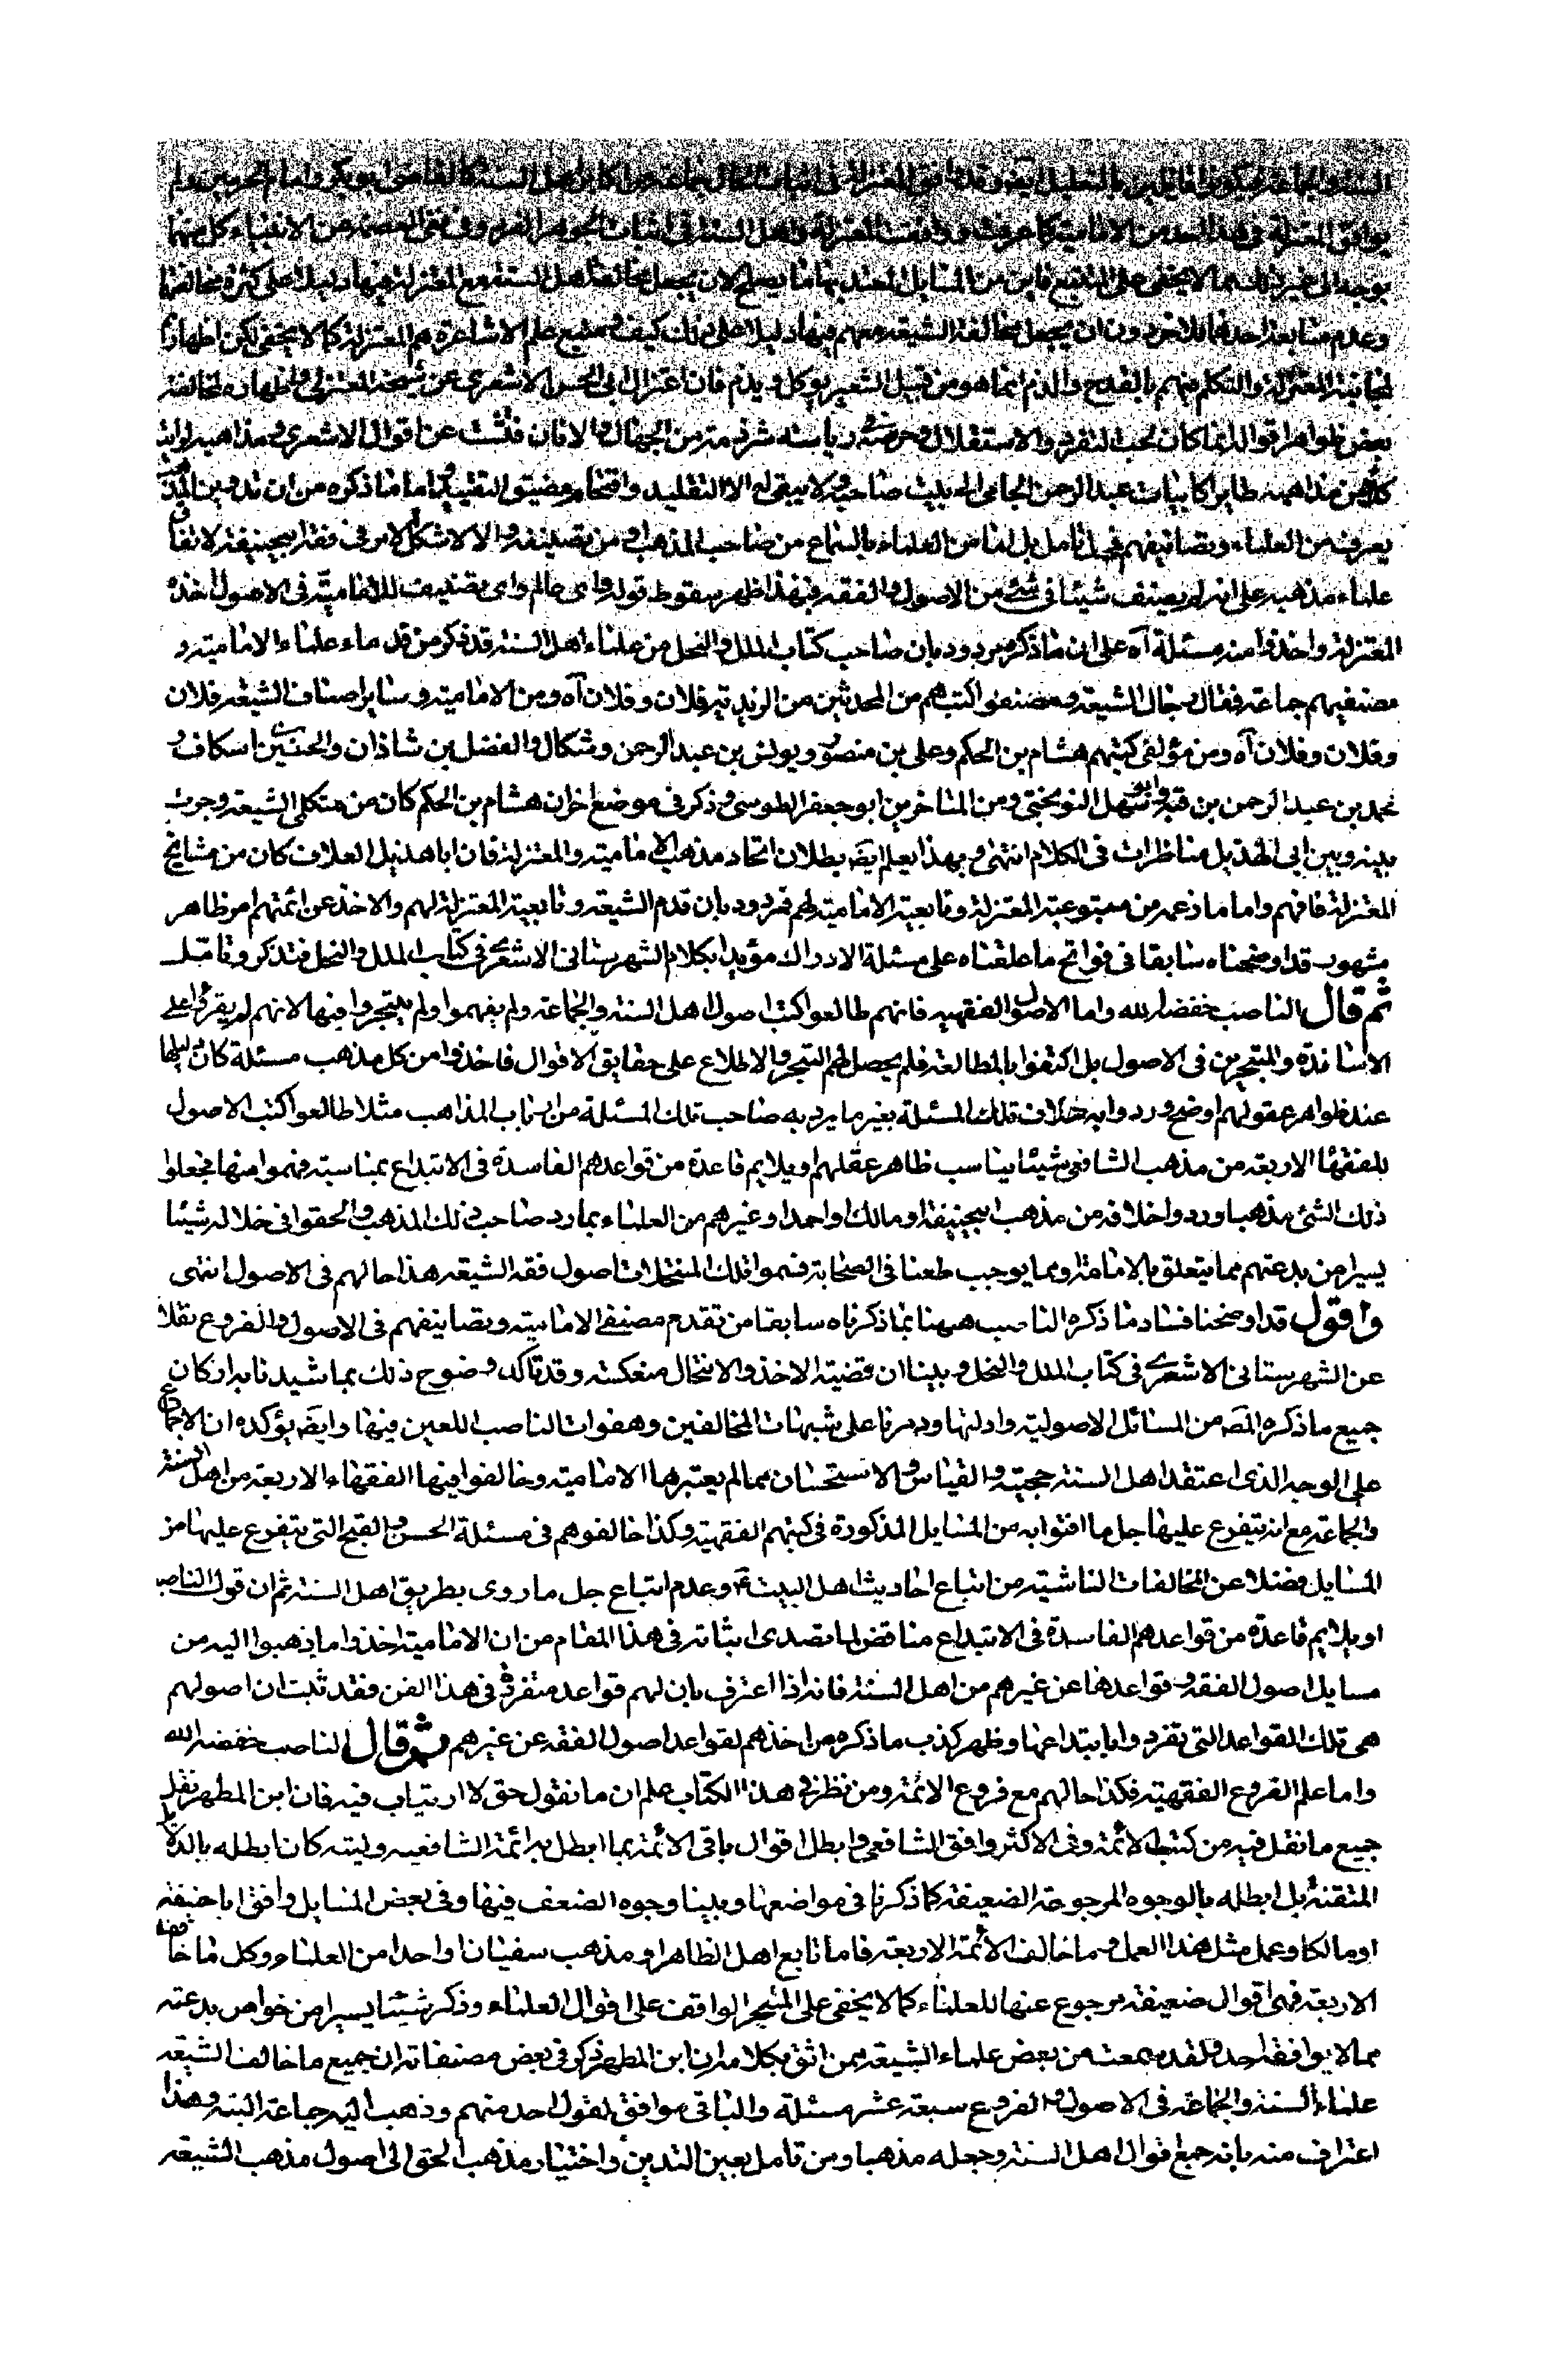 السنة والجماعة يكونوا قائلين بالتعليل ايضا وقد وافق المعتزلة فى اثبات الحال جماعة من اكابر اهل السنة كالقاضى ابو بكر وامام الحرمين ولم
يوافق المعتزلة فى هذا احد من الامامية كما عرفت ووافقت المعتزلة واهل السنة فى اثبات الجوهر الفرد وفى نفى العصمة من الانبياء كل منهما
يوجه الى غير ذلك مما لا يخفى على المتتبع فاين من المسايل المعتد بها ما يصلح لان يجعل مخالفة اهل السنة مع المعتزلة فيها دليلا على كثرة مخالفتها
وعدم متابعة احدهما للاخر دون ان يجعل مخالفة الشيعة معهم فيها دليلا على ذلك كيف ومنبع علم الاشاعرة هم المعتزلة كما لا يخفى لكن اظهارا
لمجانبة المعتزلة والتكلم فيهم بالقدح والذم انما هو من قبيل الشعير يوكل ويذم فان اعتزال ابى الحسن الاشعرى عن شيخه المعتزلى واظهاره لمخالفة
بعض ظواهر اقواله انما كان لحب التفرد والاستقلال وحرصه رياسته شرذمة من الجهال والا فان فتشت عن اقوال الاشعرى ومذاهبه رايته
كلا من مذاهبه طاير كابيات عبد الرحمن الجامى الى بيت صاحبه ولا يبقى له الا التقليد واقتحام مضيق التقييد واما ما ذكره من ان تدوين المذهب
يعرف من العلماء وتصانيفهم فمحل تامل بل انما من العلماء بالسماع من صاحب المذهب او من تصنيفه والا لاشكل الامر فى فقه ابيحنيفة لاتفاق
علماء مذهبه على انه لم يصنف شيئا فى شئ من الاصول والفقه فبهذا ظهر سقوط قوله واى عالم واى تصنيف للامامية فى الاصول اخذه
المعتزلة واخذوا منه مسئلة آه على ان ما ذكره مردود بان صاحب كتاب الملل والنحل من علماء اهل السنة قد ذكر من قدماء علماء الامامية و
مصنفيهم جماعة فقال رجال الشيعة ومصنفوا كتبهم من المحدثين من الزيدية فلان وفلان آه ومن الامامية وساير اصناف الشيعة فلان
وفلان وفلان آه ومن مؤلفى كتبهم هشام بن الحكم وعلى بن منصور ويونس بن عبد الرحمن وشكال والفضل بن شاذان والحسين اسكاف و
محمد بن عبد الرحمن بن قبه وابو سهل النوبختى ومن المتاخرين ابو جعفر الطوسى وذكر فى موضع اخر ان هشام بن الحكم كان من متكلمى الشيعة وجرت
بينه وبين ابى الهذيل مناظرات فى الكلام انتهى وبهذا يعلم ايضا بطلان اتحاد مذهب الامامية والمعتزلة فان ابا هذيل العلاف كان من مشايخ
المعتزلة فافهم واما ما زعمه من متبوعية المعتزلة وتابعية الامامية لهم فمردود بان قدم الشيعة وتابعية المعتزلة لهم والاخذ عن ائمتهم امر ظاهر
مشهور قد اوضحناه سابقا فى فواتح ما علقناه على مسئلة الادراك مؤيدا بكلام الشهرستانى الاشعرى فى كتاب الملل والنحل فتذكر وتامل
ثم قال الناصب خفضه الله واما الاصول الفقهيه فانهم طالعوا كتب اصول اهل السنة والجماعة ولم يفهموا ولم يتبحروا فيها لانهم لم يقرؤا على
الاساتذة والمتبحرين فى الاصول بل اكتفوا بالمطالعة فلم يحصل لهم التبحر والاطلاع على حقايق الاقوال فاخذوا من كل مذهب مسئلة كان دليلها
عند ظواهر عقولهم اوضح وردوا به خلاف تلك المسئلة بغير ما يرد به صاحب تلك المسئلة من ارباب المذاهب مثلا طالعوا كتب الاصول
للفقهاء الاربعة من مذهب الشافعى شيئا يناسب ظاهر عقلهم او يلايم قاعدة من قواعدهم الفاسدة فى الابتداع بمناسبة فهموا منها فجعلوا
ذلك الشئ مذهبا وردوا خلافه من مذهب ابيحنيفة او مالك او احمد او غيرهم من العلماء بما رد صاحب ذلك المذهب والحقوا فى خلاله شيئا
يسيرا من بدعتهم مما يتعلق بالامامة ومما يوجب طعنا فى الصحابة فسموا تلك المنتحلات اصول فقه الشيعة هذا حالهم فى الاصول انتهى
واقول قد اوضحنا فساد ما ذكره الناصب هيهنا بما ذكرناه سابقا من تقدم مصنفى الامامية وتصانيفهم فى الاصول والفروع نقلا
عن الشهرستانى الاشعرى فى كتاب الملل والنحل وبينا ان قضية الاخذ والانتحال منعكسة وقد تاكد وضوح ذلك بما شيدنا به اركان
جميع ما ذكره المص من المسائل الاصولية وادلتها ودمرنا على شبهات المخالفين وهفوات الناصب اللعين فيها وايضا يؤكده ان الاجماع
على الوجه الذى اعتقد اهل السنة حجيته والقياس والاستحسان مما لم يعتبرها الامامية وخالفوا فيها الفقهاء الاربعة من اهل السنة
والجماعة مع انه يتفرع عليها جل ما افتوا به من المسايل المذكورة فى كتبهم الفقهية وكذا خالفوهم فى مسئلة الحسن والقبح التى يتفرع عليها من
المسايل فضلا عن المخالفات الناشية من اتباع احاديث اهل البيت ع وعدم اتباع جل ما روى بطريق اهل السنة ثم ان قول الناصب
او يلايم قاعدة من قواعدهم الفاسدة فى الابتداع مناقض لما تصدى اثباته فى هذا المقام من ان الامامية اخذوا ما ذهبوا اليه من
مسايل اصول الفقه وقواعدها عن غيرهم من اهل السنة فانه اذا اعترف بان لهم قواعد متفرقة فى هذا الفن فقد ثبت ان اصولهم
هى تلك القواعد التى تفرد وابابتداعها وظهر كذب ما ذكره من اخذهم لقواعد اصول الفقه عن غيرهم ثم قال الناصب خفضه الله
واما علم الفروع الفقهية فكذا حالهم مع فروع الائمة ومن نظر فى هذا الكتاب علم ان ما نقول حق لا ارتياب فيه فان ابن المطهر نقل
جميع ما نقل فيه من كتب الائمة وفى الاكثر وافق الشافعى وابطل اقوال باقى الائمة بما ابطل به ائمة الشافعيه وليته كان ابطله بالدلايل
المتقنة بل ابطله بالوجوه المرجوحة الضعيفة كما ذكرنا فى مواضعها وبينا وجوه الضعف فيها وفى بعض المسايل وافق ابا حنيفة
او مالكا وعمل مثل هذا العمل وما خالف الائمة الاربعة فاما تابع اهل الظاهر او مذهب سفيان او احدا من العلماء وكل ما خالف
الاربعة فهى اقوال ضعيفة مرجوع عنها للعلماء كما لا يخفى على المتبحر الواقف على اقوال العلماء وذكر شيئا يسيرا من خواص بدعته
مما لا يوافقه احد ولقد سمعت من بعض علماء الشيعة ممن اثق بكلامه ان ابن المطهر ذكر فى بعض مصنفاته ان جميع ما خالف الشيعة
علماء السنة والجماعة فى الاصول والفروع سبعة عشر مسئلة والباقى موافق لقول احد منهم وذهب اليه جماعة البتة وهذا
اعتراف منه بانه جمع اقوال اهل السنة وجعله مذهبا ومن تامل بعين التدين واختيار مذهب الحق الى اصول مذهب الشيعة